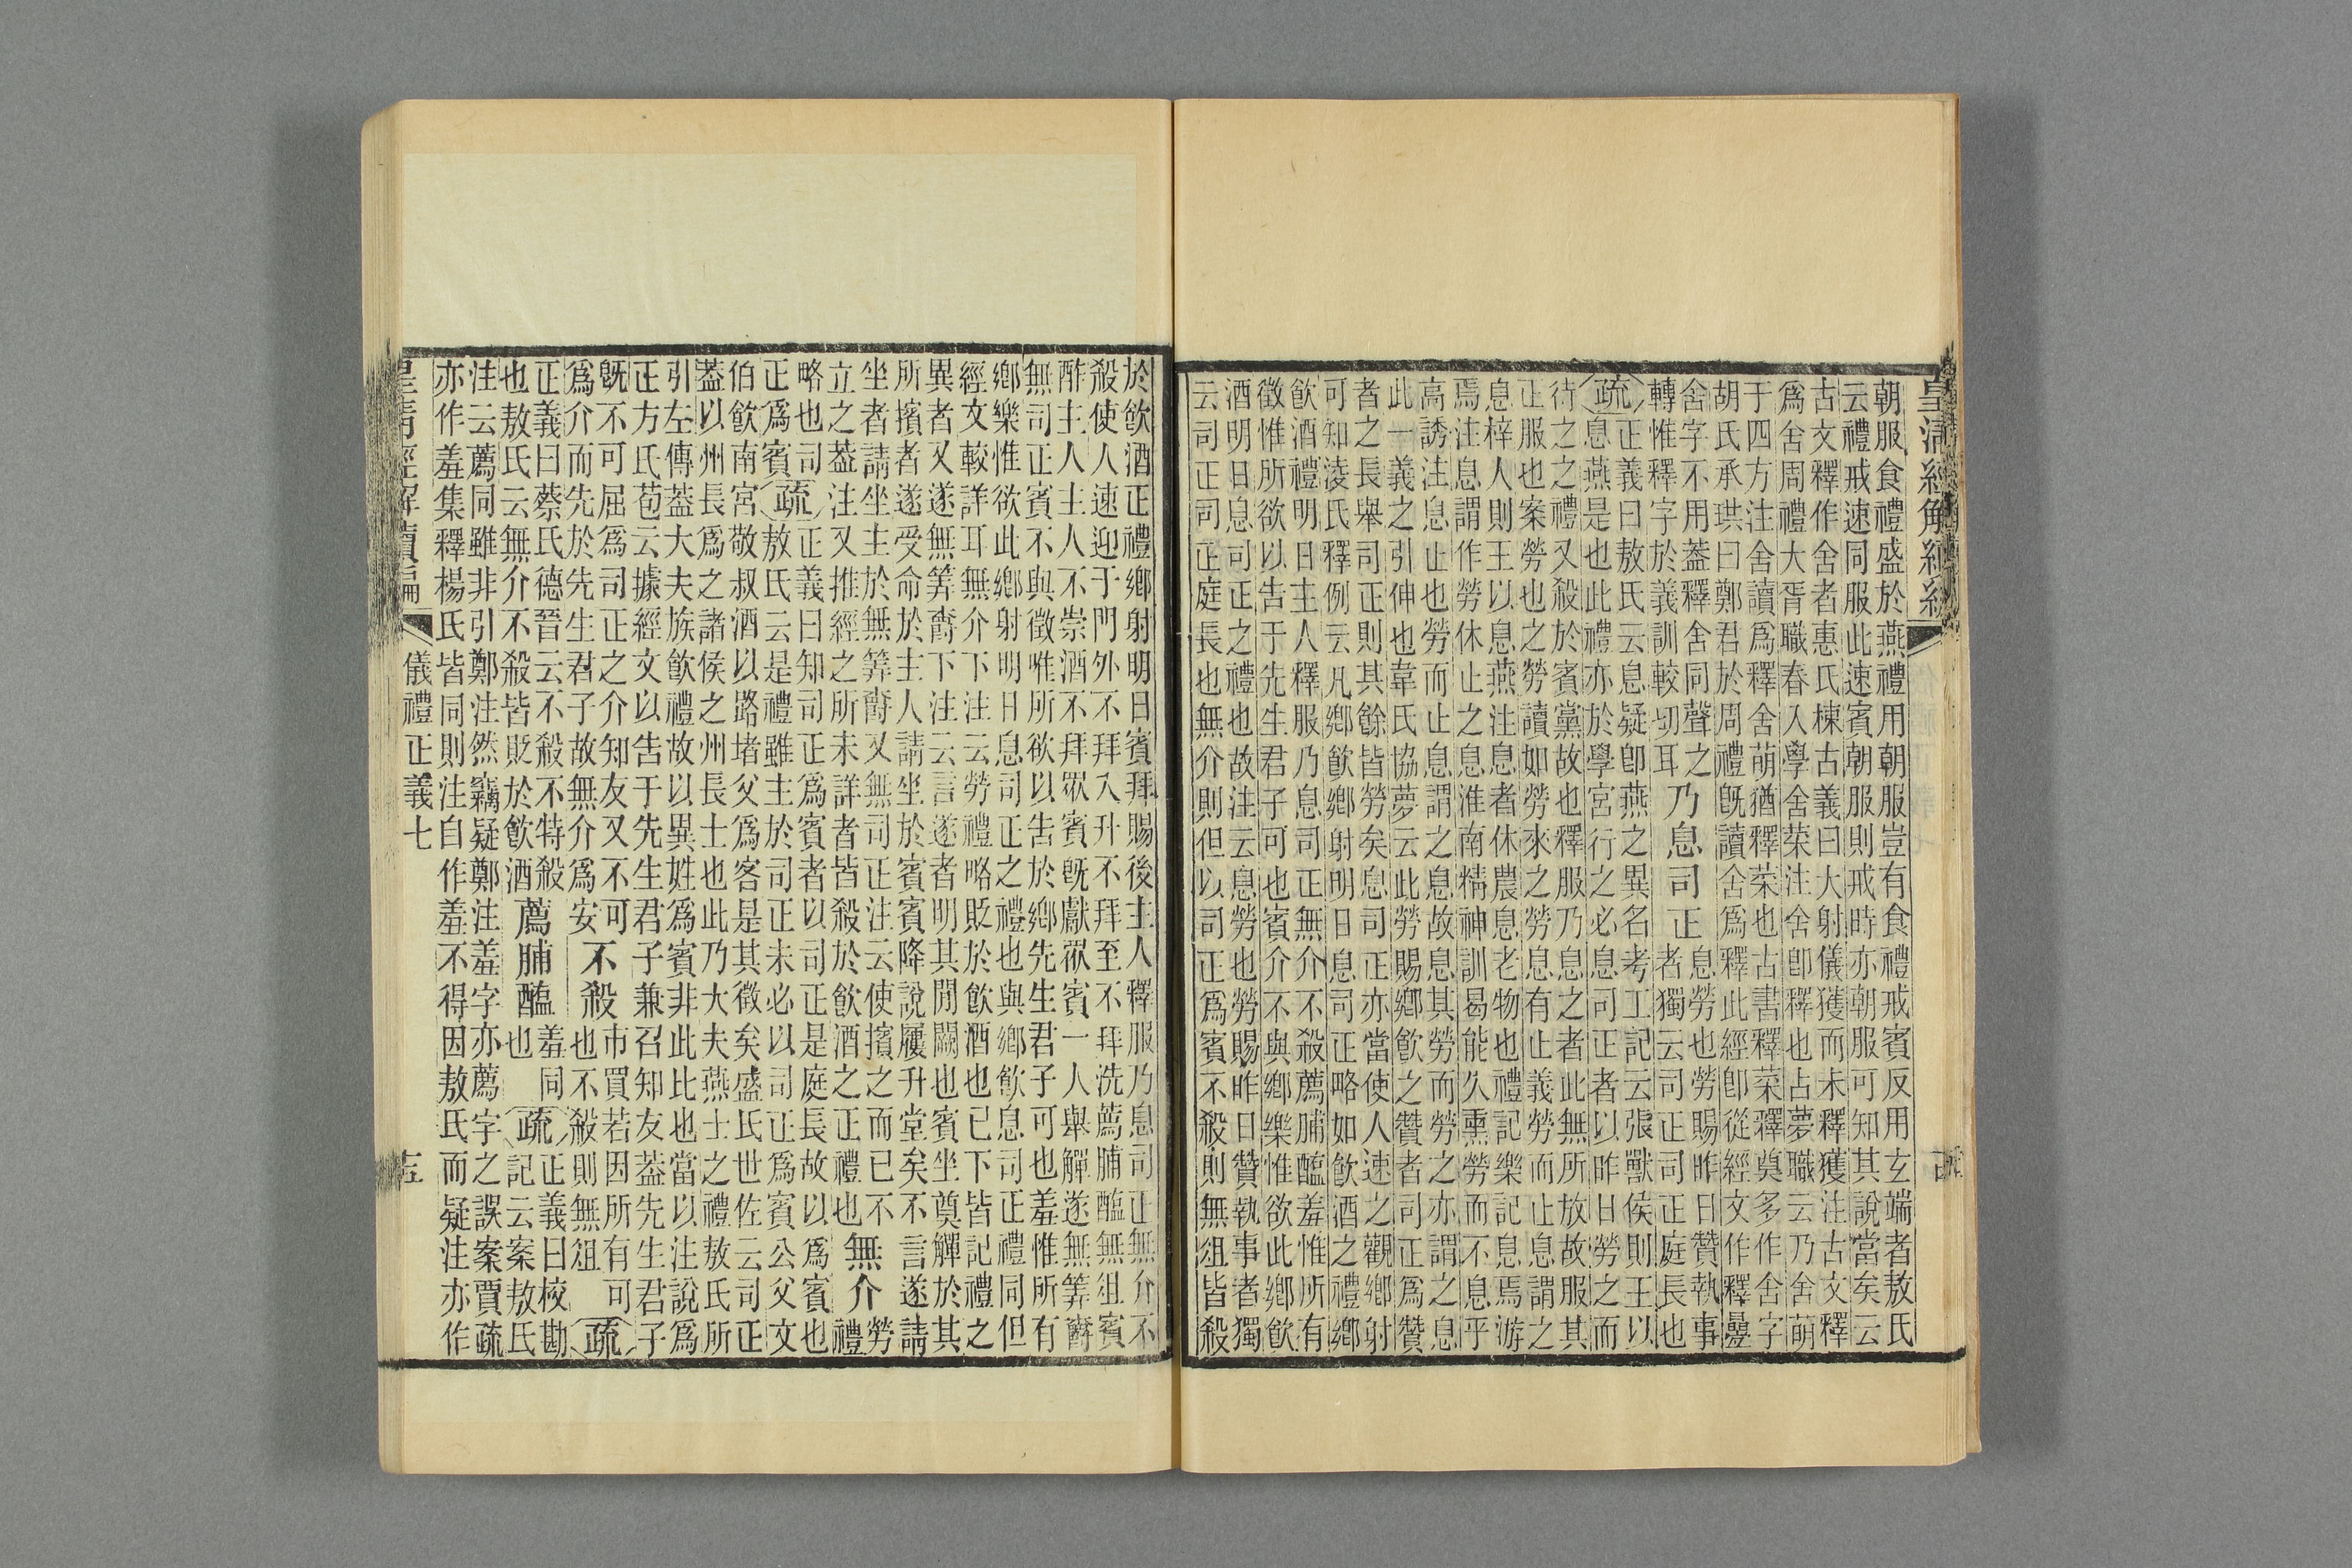 皇清經解續編
朝服食禮盛於燕禮用朝服豈有食禮戒賓反用玄端者敖氏
云禮戒速同服此速賓朝服則戒時亦朝服可知其說當矣云
古文釋作舍者惠氏棟古義曰大射儀獲而未釋獲注古文釋
爲舍周禮大胥職春入學舍菜注舍卽釋也占夢職云乃舍萌
于四方注舍讀爲釋舍萌猶釋菜也古書釋菜釋奠多作舍字
胡氏承珙曰鄭君於周禮旣讀舍爲釋此經卽從經文作釋疊
舍字不用葢釋舍同聲之
轉惟釋字於義訓較切耳
乃息司正
息勞也勞賜昨日贊執事
者獨云司正司正庭長也
疏
正義曰敖氏云息疑卽燕之異名考工記云張獸侯則王以
息燕是也此禮亦於學宮行之必息司正者以昨日勞之而
待之之禮又殺於賓黨故也釋服乃息之者此無所放故服其
正服也案勞也之勞讀如勞來之勞息有止義勞而止息謂之
息梓人則王以息燕注息者休農息老物也禮記樂記息焉游
焉注息謂作勞休止之息淮南精神訓曷能久熏勞而不息乎
高誘注息止也勞而止息謂之息故息其勞而勞之亦謂之息
此一義之引伸也韋氏協夢云此勞賜鄉飲之贊者司正爲贊
者之長舉司正則其餘皆勞矣息司正亦當使人速之觀鄉射
可知淩氏釋例云凡鄉飲鄉射明日息司正略如飲酒之禮鄉
飲酒禮明日主人釋服乃息司正無介不殺薦脯醢羞惟所有
徵惟所欲以告于先生君子可也賓介不與鄉樂惟欲此鄉飲
酒明日息司正之禮也故注云息勞也勞賜昨日贊執事者獨
云司正司正庭長也無介則但以司正爲賓不殺則無俎皆殺
於飲酒正禮鄉射明日賓拜賜後主人釋服乃息司正無介不
殺使人速迎于門外不拜入升不拜至不拜洗薦脯醢無俎賓
酢主人主人不崇酒不拜眾賓旣獻眾賓一人舉觶遂無筭爵
無司正賓不與徵唯所欲以告於鄉先生君子可也羞惟所有
鄉樂惟欲此鄉射明日息司正之禮也與鄉飲息司正禮同但
經文較詳耳無介下注云勞禮略貶於飲酒也已下皆記禮之
異者又遂無筭爵下注云言遂者明其閒闕也賓坐奠觶於其
所擯者遂受命於主人請坐於賓賓降說屨升堂矣不言遂請
坐者請坐主於無筭爵又無司正注云使擯之而已不
立之葢注又推經之所未詳者皆殺於飲酒之正禮也
無介
勞
禮
略也司
正爲賓
疏
正義曰知司正爲賓者以司正是庭長故以爲賓也
敖氏云是禮雖主於司正未必以司正爲賓公父文
伯飲南宮敬叔酒以路堵父爲客是其徵矣盛氏世佐云司正
葢以州長爲之諸侯之州長士也此乃大夫燕士之禮敖氏所
引左傳葢大夫族飲禮故以異姓爲賓非此比也當以注說爲
正方氏苞云據經文以告于先生君子兼召知友葢先生君子
旣不可屈爲司正之介知友又不可
爲介而先於先生君子故無介爲安
不殺
市買若因所有可
也不殺則無俎
疏
正義曰蔡氏德晉云不殺不特殺
也敖氏云無介不殺皆貶於飲酒
薦脯醢
羞同
也
疏
正義曰校勘
記云案敖氏
注云薦同雖非引鄭注然竊疑鄭注羞字亦薦字之誤案賈疏
亦作羞集釋楊氏皆同則注自作羞不得因敖氏而疑注亦作
皇清經解續編
儀禮正義七
十五